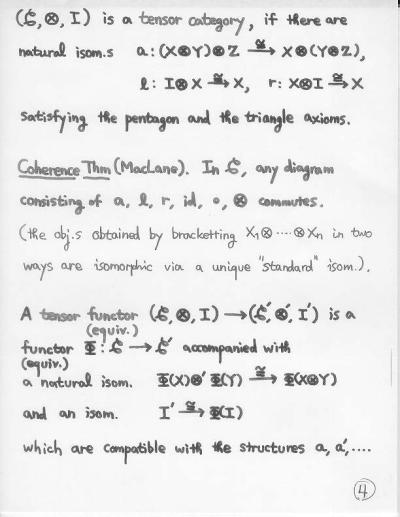 (𝒞, ⊗, I) is a tensor category, if there are
natural isom.s a : (X⊗Y)⊗Z ≅→ X⊗(Y⊗Z),
l : I⊗X ≅→ X, r : X⊗I ≅→ X
satisfying the pentagon and the triangle axioms.
Coherence Thm (MacLane). In 𝒞, any diagram
consisting of a, l, r, id, ∘, ⊗ commutes.
(the obj.s obtained by bracketting X₁⊗····⊗Xₙ in two
ways are isomorphic via a unique "standard" isom.).
A tensor functor (𝒞, ⊗, I) → (𝒞′, ⊗′, I′) is a
(equiv.)
functor Φ : 𝒞 → 𝒞′ accompanied with
(equiv.)
a natural isom. Φ(X)⊗′Φ(Y) ≅→ Φ(X⊗Y)
and an isom. I′ ≅→ Φ(I)
which are compatible with the structures a, a′, ....
4